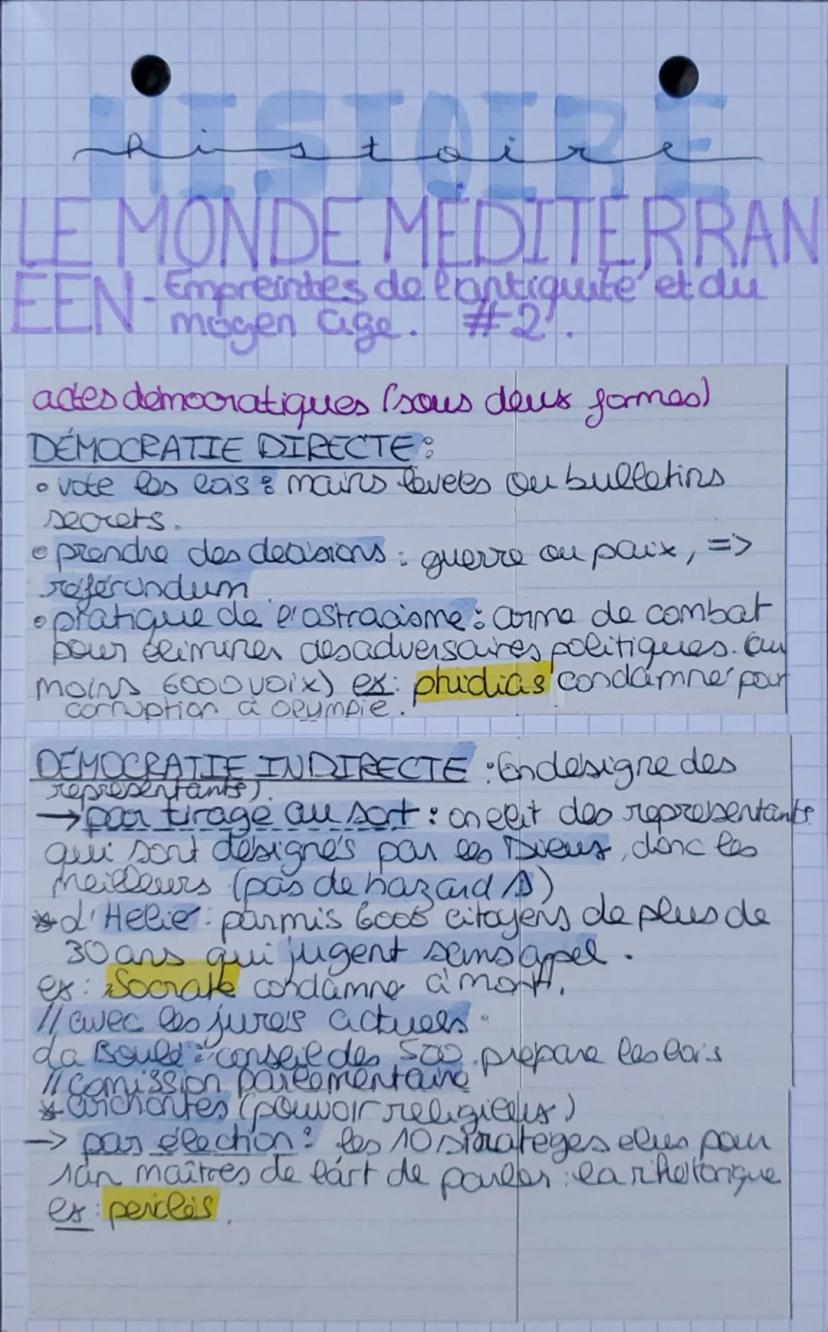 HISTOIRE
histoire
LE MONDE MÉDITERRAN
EEN - Empreintes de l'antiquité et du
moyen age. #2.
actes démocratiques (sous deux formes)
DÉMOCRATIE DIRECTE :
• vote les lois : mains levées ou bulletins
secrets.
• prendre des decisions : guerre ou paix, =>
référundum
• pratique de l'ostracisme : arme de combat
pour éliminer des adversaires politiques. (au
moins 6000 voix) ex : phidias condamné pour
corruption à olympie.
DÉMOCRATIE INDIRECTE : (on désigne des
représentants).
→ par tirage au sort : on elit des representants
qui sont désignés par les Dieux, donc les
meilleurs (pas de hazard ⚠)
* d'Helie : parmis 6000 citoyens de plus de
30 ans qui jugent sans appel.
ex : Socrate condamné à mort.
// avec les jurés actuels.
La Boulé : conseil des 500. prepare les lois
// comission parlementaire
* archontes (pouvoir religieux)
→ par élection : les 10 stratèges elus pour
1an maîtres de l'art de parler : la rhétorique
ex : periclès.